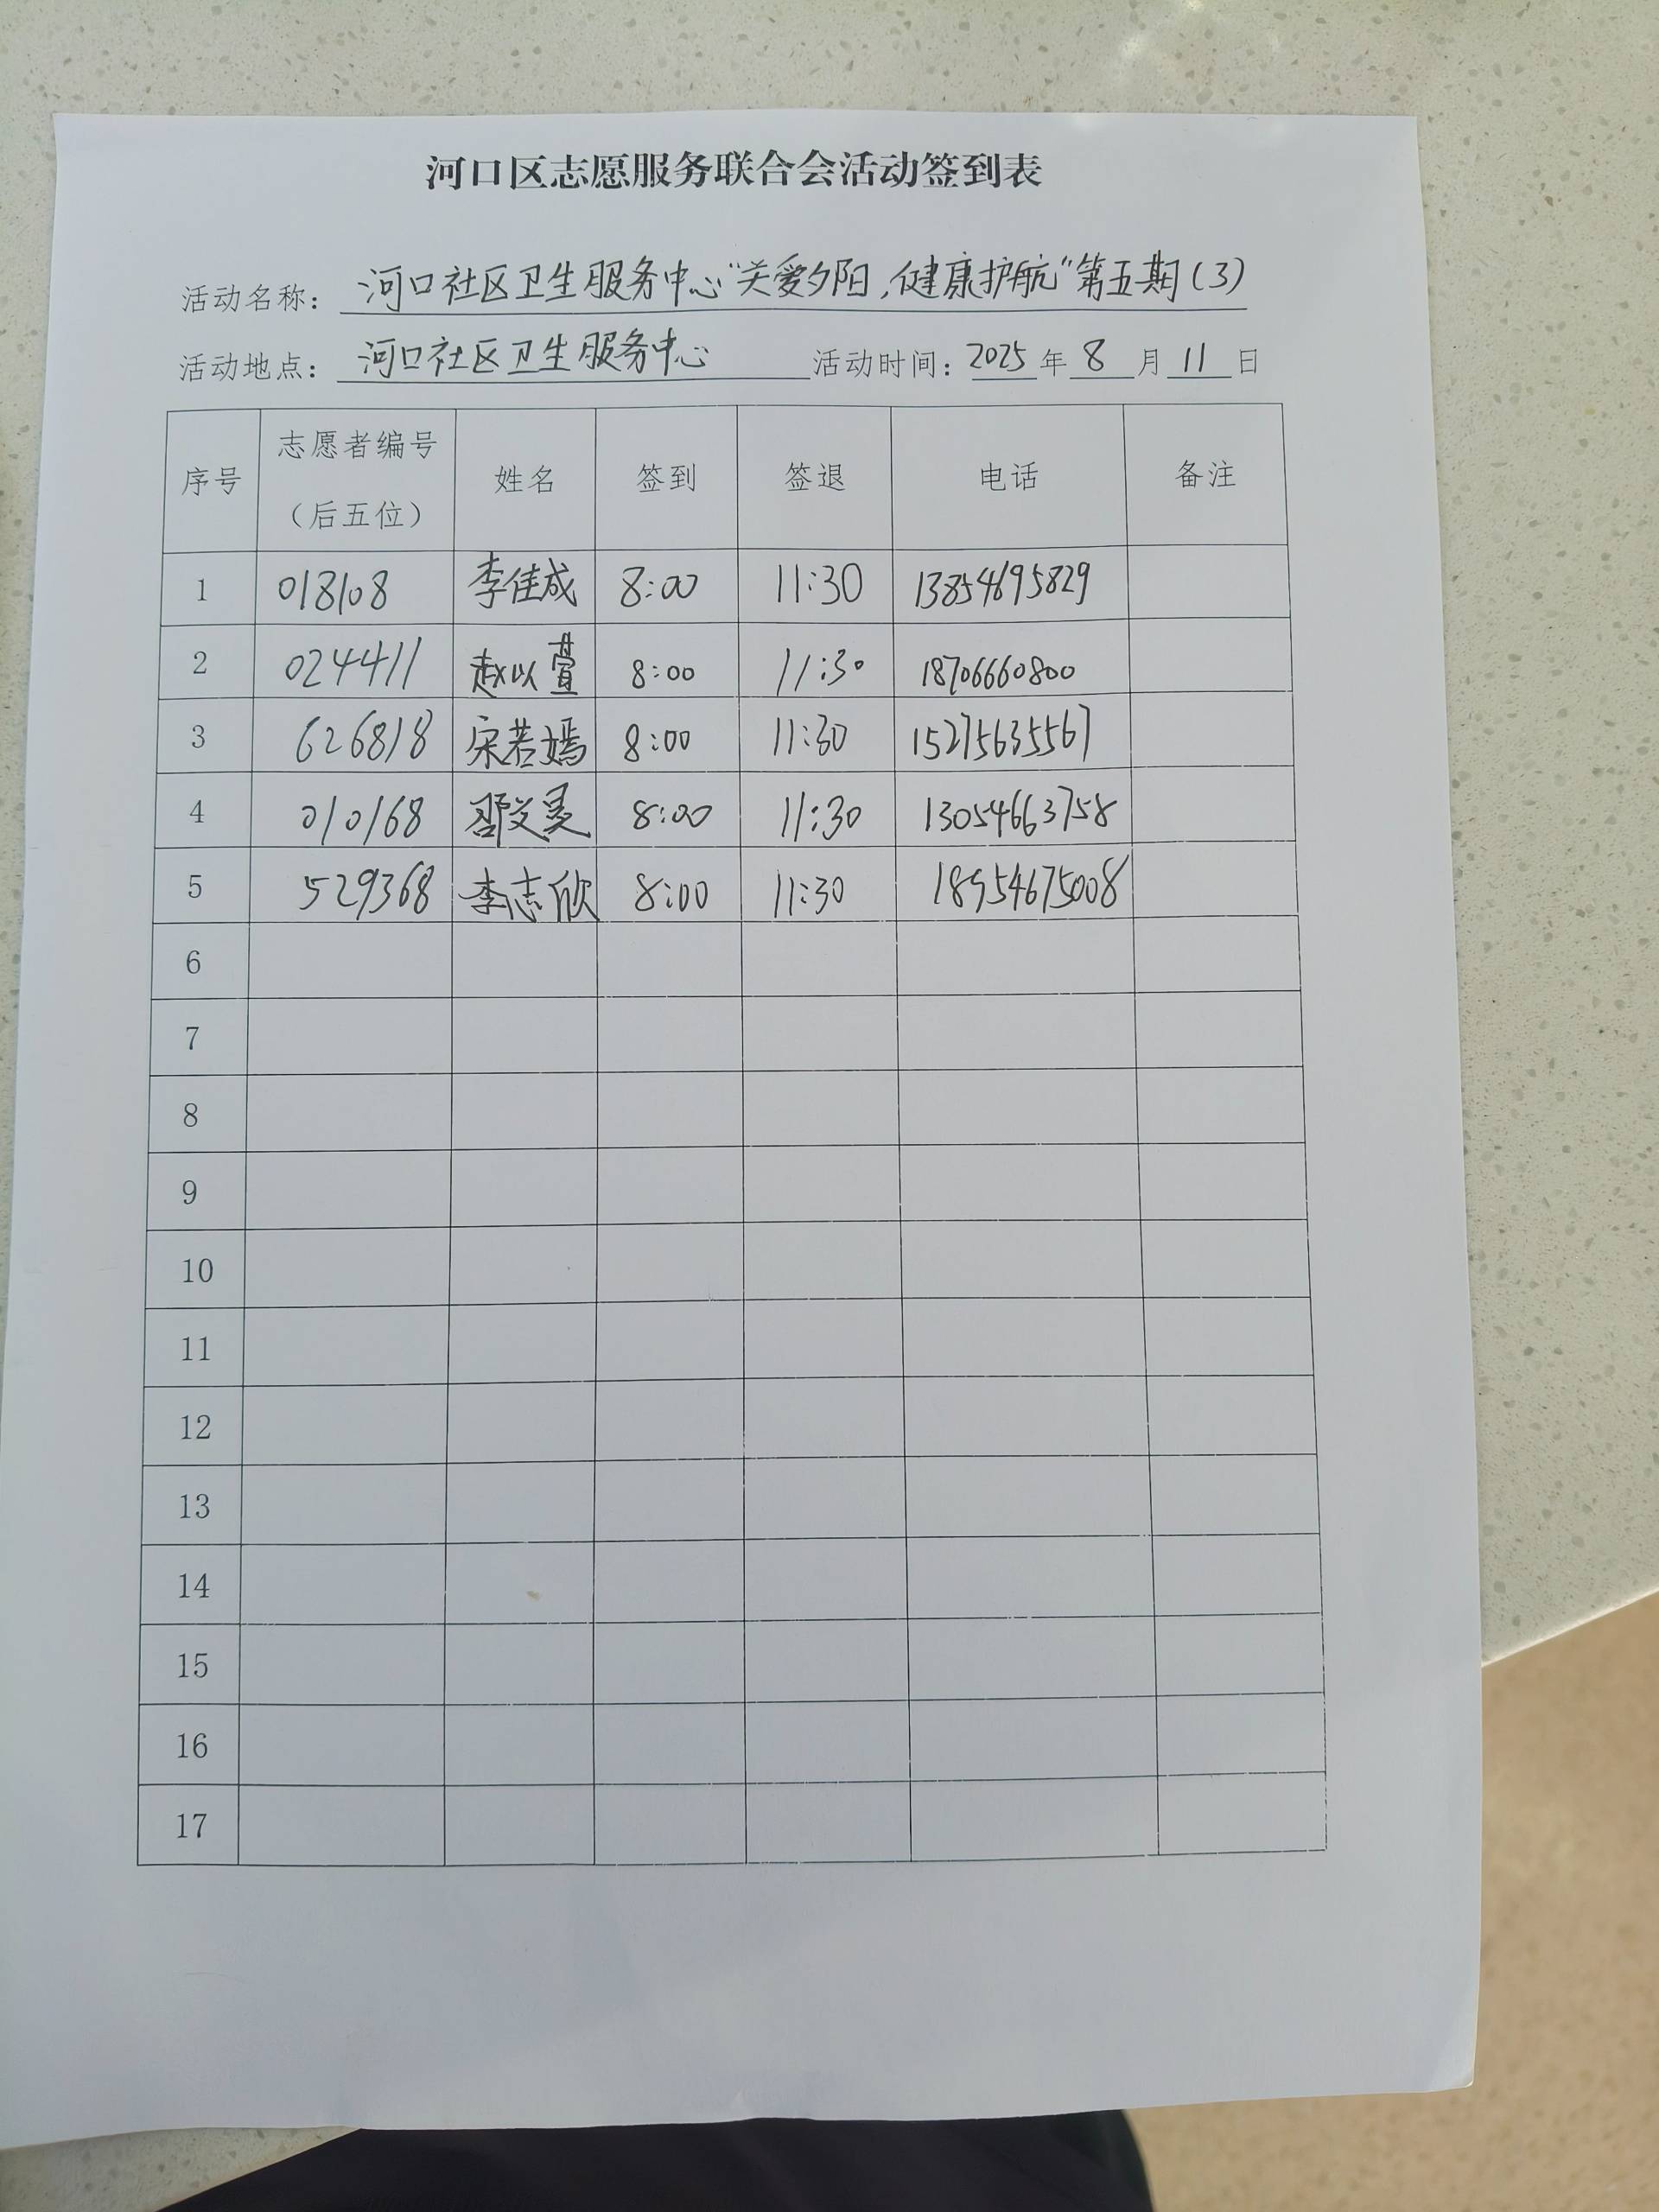 河口区志愿服务联合会活动签到表
活动名称: 河口社区卫生服务中心"关爱夕阳,健康护航"第五期(3)
活动地点: 河口社区卫生服务中心 活动时间: 2025 年 8 月 11 日
序号 志愿者编号(后五位) 姓名 签到 签退 电话 备注
1 018108 李佳成 8:00 11:30 13854695829
2 024411 赵以萱 8:00 11:30 18706660800
3 626818 宋若嫣 8:00 11:30 15275635567
4 010168 8:00 11:30 13054663758
5 529368 李志欣 8:00 11:30 18954675008
6
7
8
9
10
11
12
13
14
15
16
17